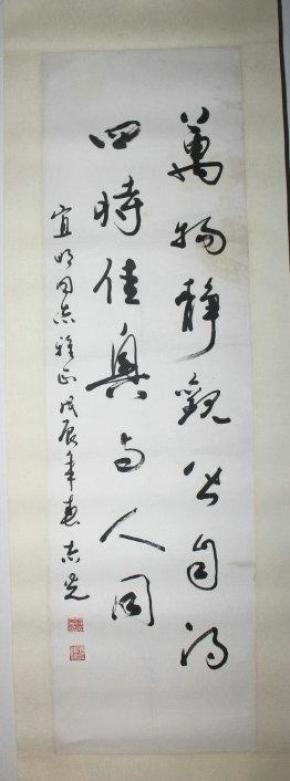 萬物静觀皆自得
四時佳興与人同
宜明同志雅正戊辰年春志光